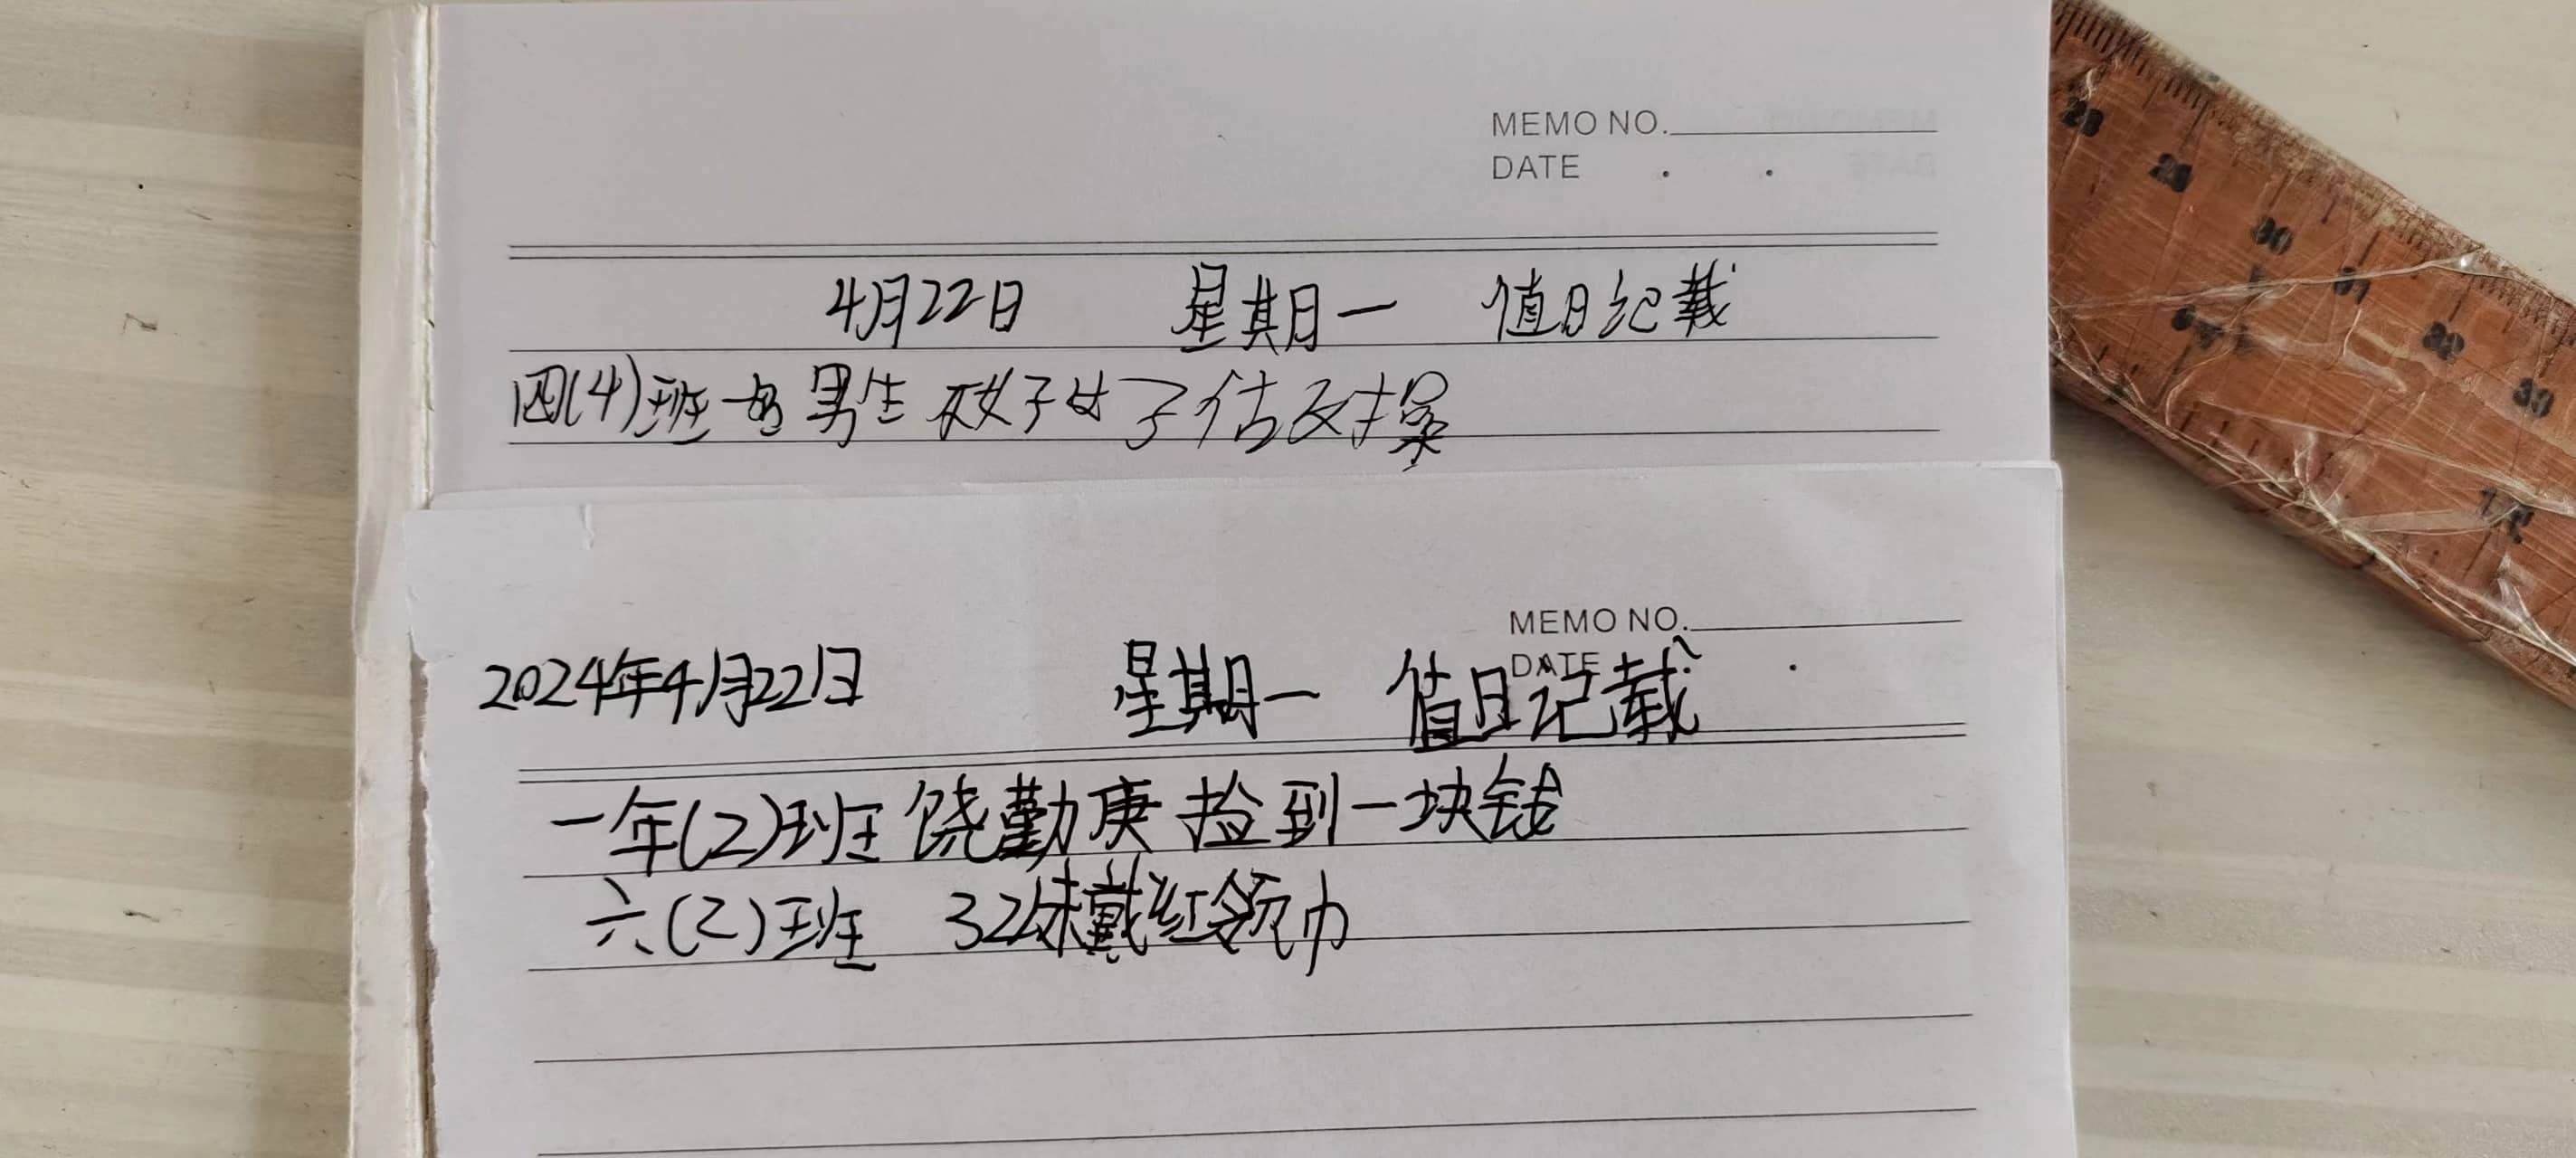 MEMO NO.
DATE . .
4月22日 星期一 值日记载
四(4)班 男生
MEMO NO.
DATE .
2024年4月22日 星期一 值日记载
一年(2)班 饶勤庚 捡到一块钱
六(2)班 32未戴红领巾
28
29
30
31
32
33